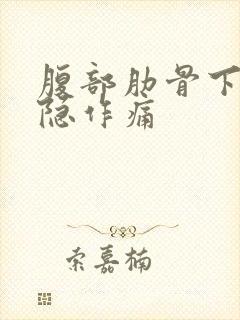 腹部肋骨下
隐作痛
索嘉楠